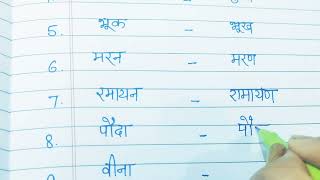 5. भूक - भूख
6. मरन - मरण
7. रमायन - रामायण
8. पौदा - पौ
वीना -